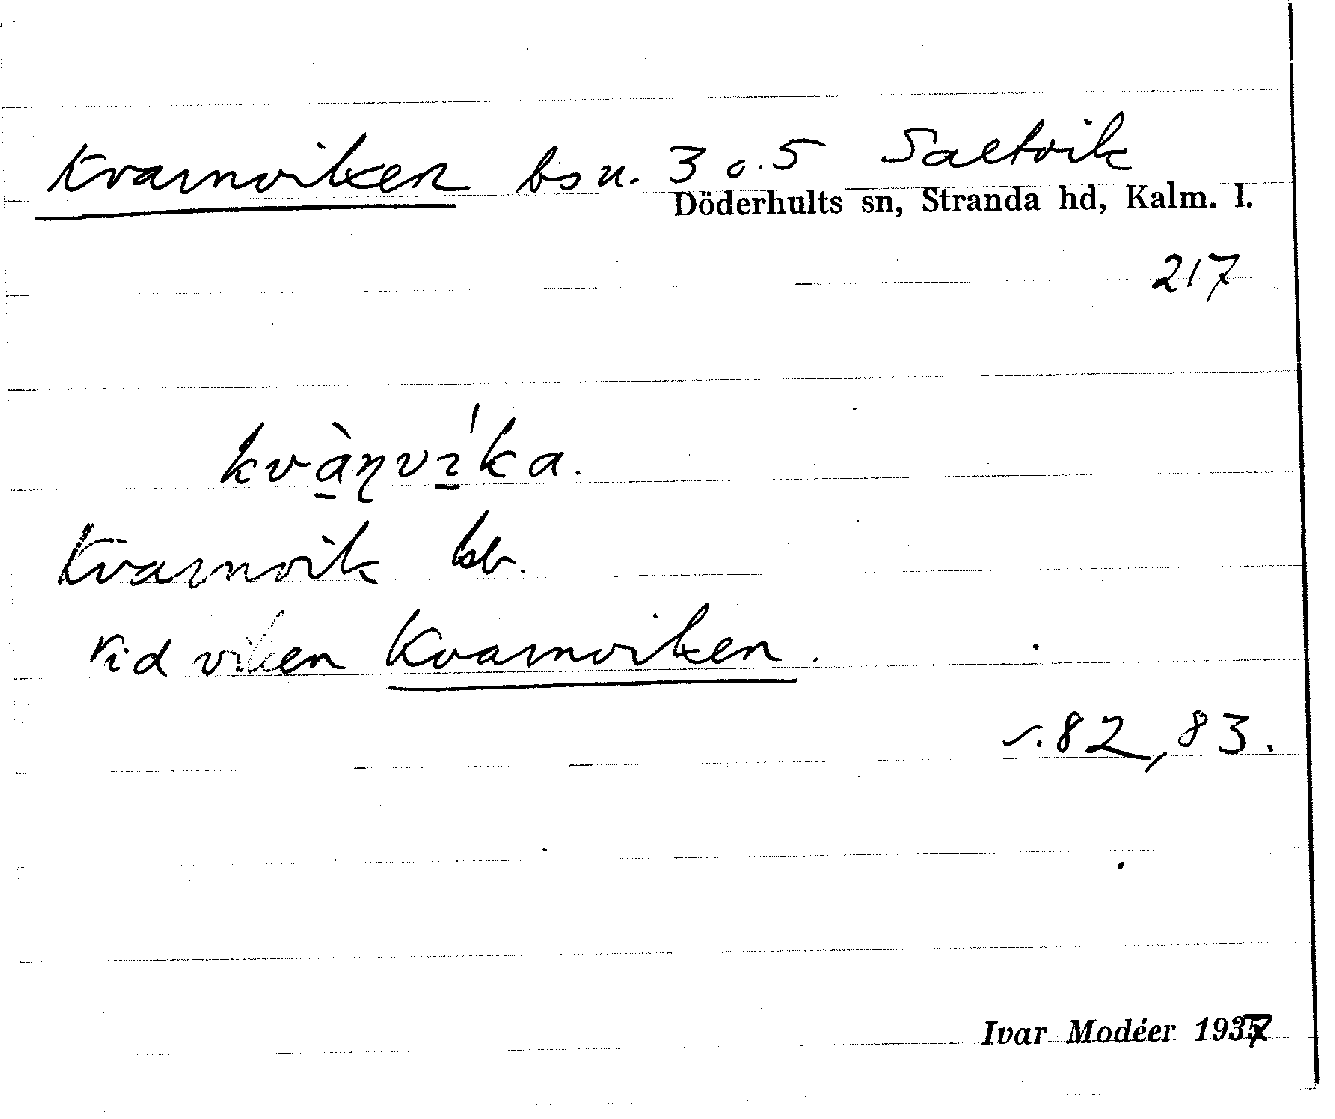 Kvarnviken bsu. 3 o. 5 Saltvik
Döderhults sn, Stranda hd, Kalm. l.
217
kvàɳvı̍ka.
Kvarnvik kb.
Vid viken Kvarnviken.
s. 82, 83.
Ivar Modéer 1937